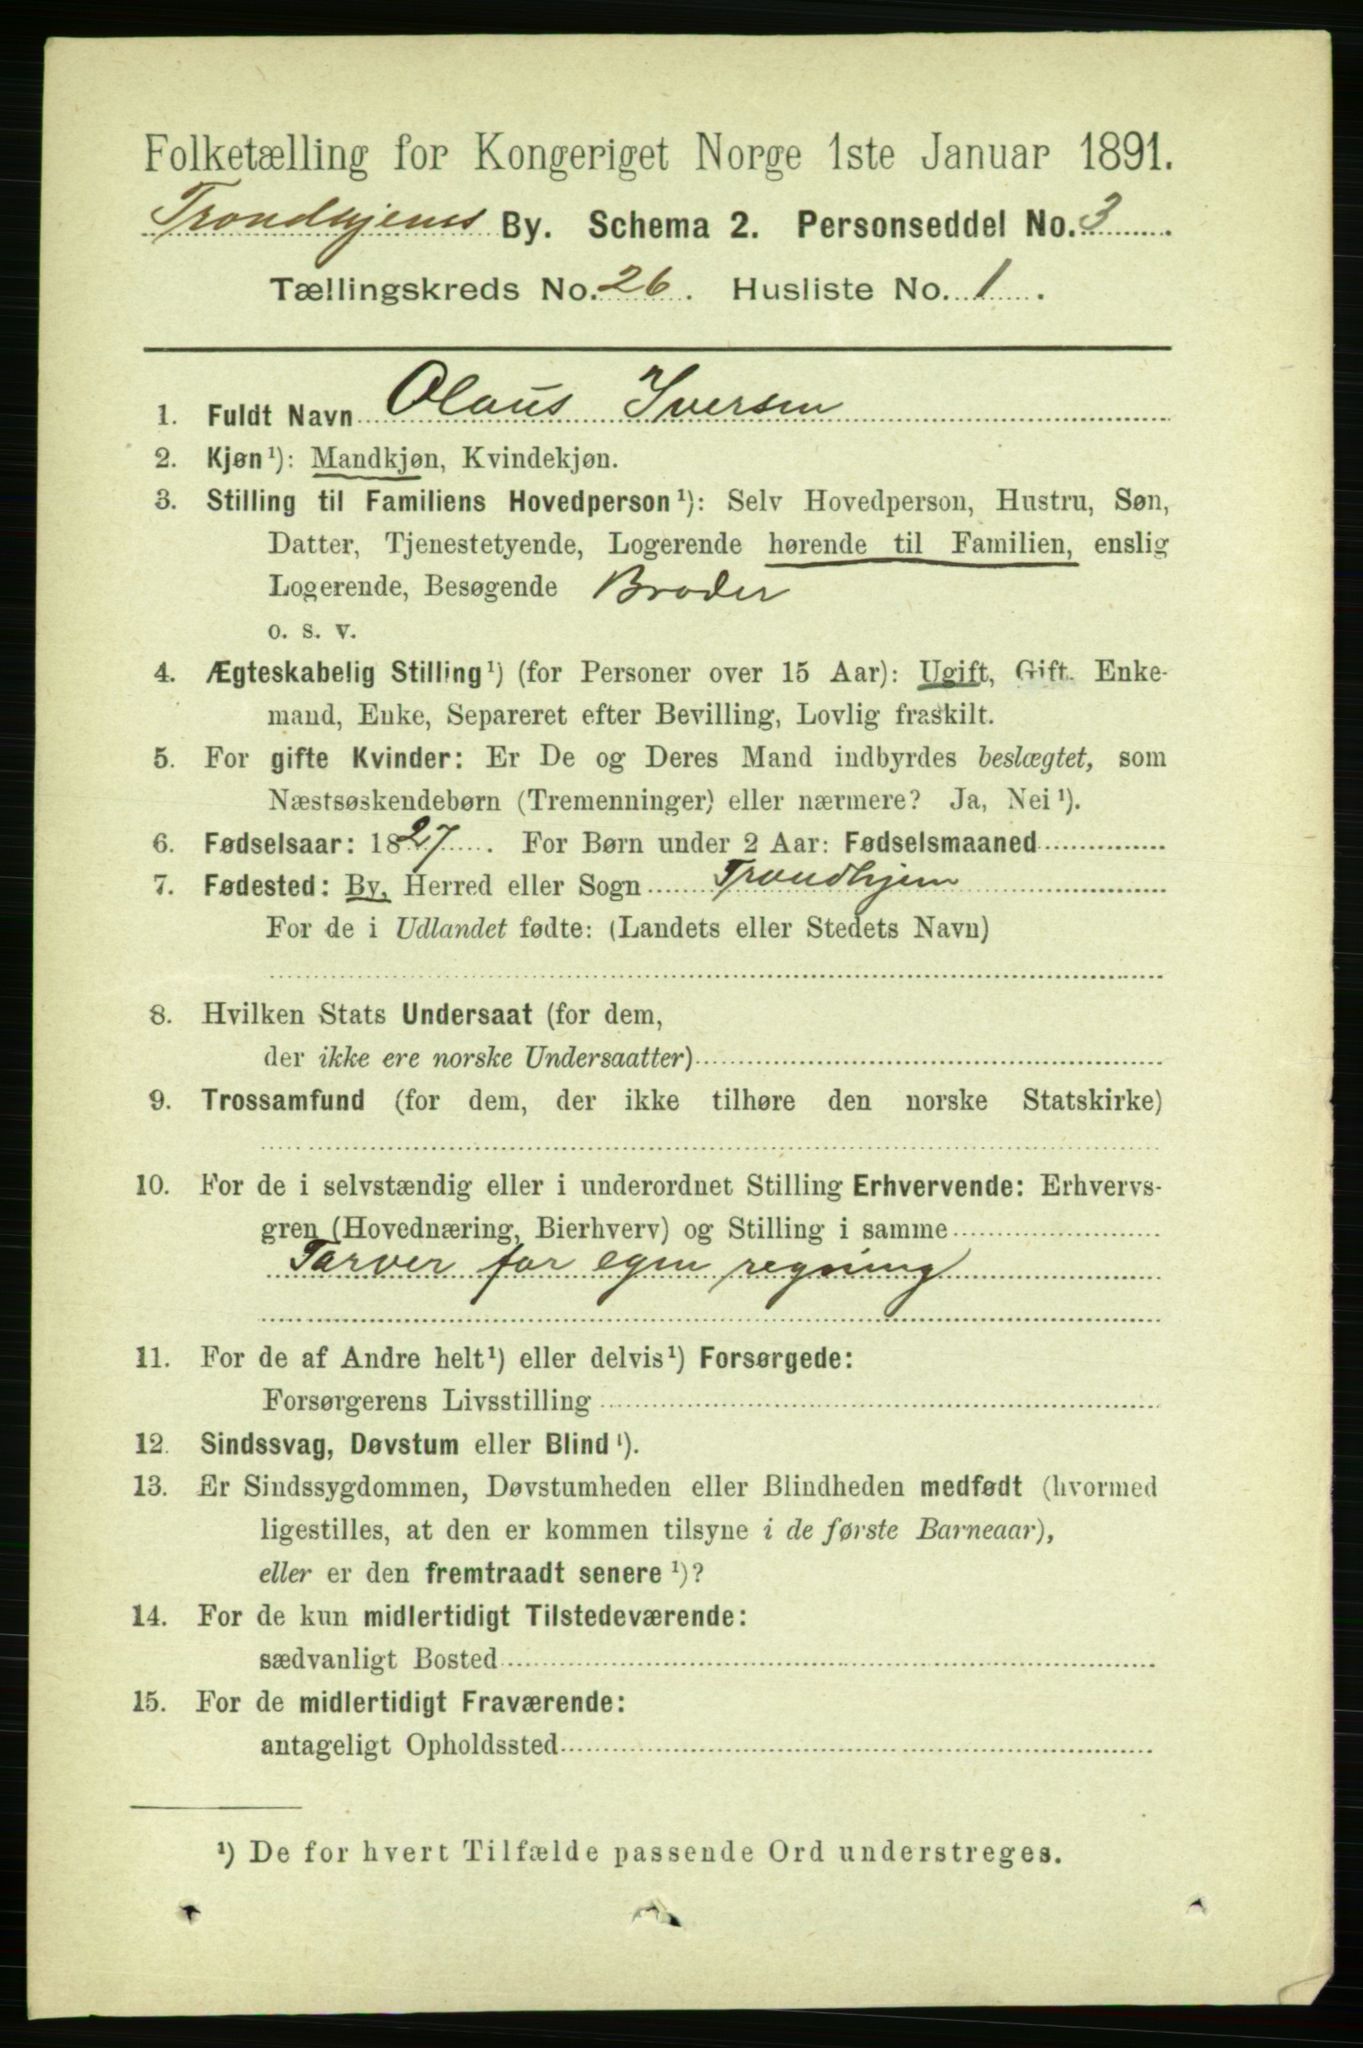 Folketælling for Kongeriget Norge 1ste Januar 1891.
Trondhjems By. Schema 2. Personseddel No. 3
Tællingskreds No. 26. Husliste No. 1.
1. Fuldt Navn Olaus Iversen
2. Kjøn¹): Mandkjøn, Kvindekjøn.
3. Stilling til Familiens Hovedperson¹): Selv Hovedperson, Hustru, Søn,
Datter, Tjenestetyende, Logerende hørende til Familien, enslig
Logerende, Besøgende Broder
o. s. v.
4. Ægteskabelig Stilling¹) (for Personer over 15 Aar): Ugift, Gift. Enke-
mand, Enke, Separeret efter Bevilling, Lovlig fraskilt.
5. For gifte Kvinder: Er De og Deres Mand indbyrdes beslægtet, som
Næstsøskendebørn (Tremenninger) eller nærmere? Ja, Nei¹).
6. Fødselsaar: 1827. For Børn under 2 Aar: Fødselsmaaned
7. Fødested: By, Herred eller Sogn Trondhjem
For de i Udlandet fødte: (Landets eller Stedets Navn)
8. Hvilken Stats Undersaat (for dem,
der ikke ere norske Undersaatter)
9. Trossamfund (for dem, der ikke tilhøre den norske Statskirke)
10. For de i selvstændig eller i underordnet Stilling Erhvervende: Erhvervs-
gren (Hovednæring, Bierhverv) og Stilling i samme
Farver for egen regning
11. For de af Andre helt¹) eller delvis¹) Forsørgede:
Forsørgerens Livsstilling
12. Sindssvag, Døvstum eller Blind¹).
13. Er Sindssygdommen, Døvstumheden eller Blindheden medfødt (hvormed
ligestilles, at den er kommen tilsyne i de første Barneaar),
eller er den fremtraadt senere¹)?
14. For de kun midlertidigt Tilstedeværende:
sædvanligt Bosted
15. For de midlertidigt Fraværende:
antageligt Opholdssted
¹) De for hvert Tilfælde passende Ord understreges.